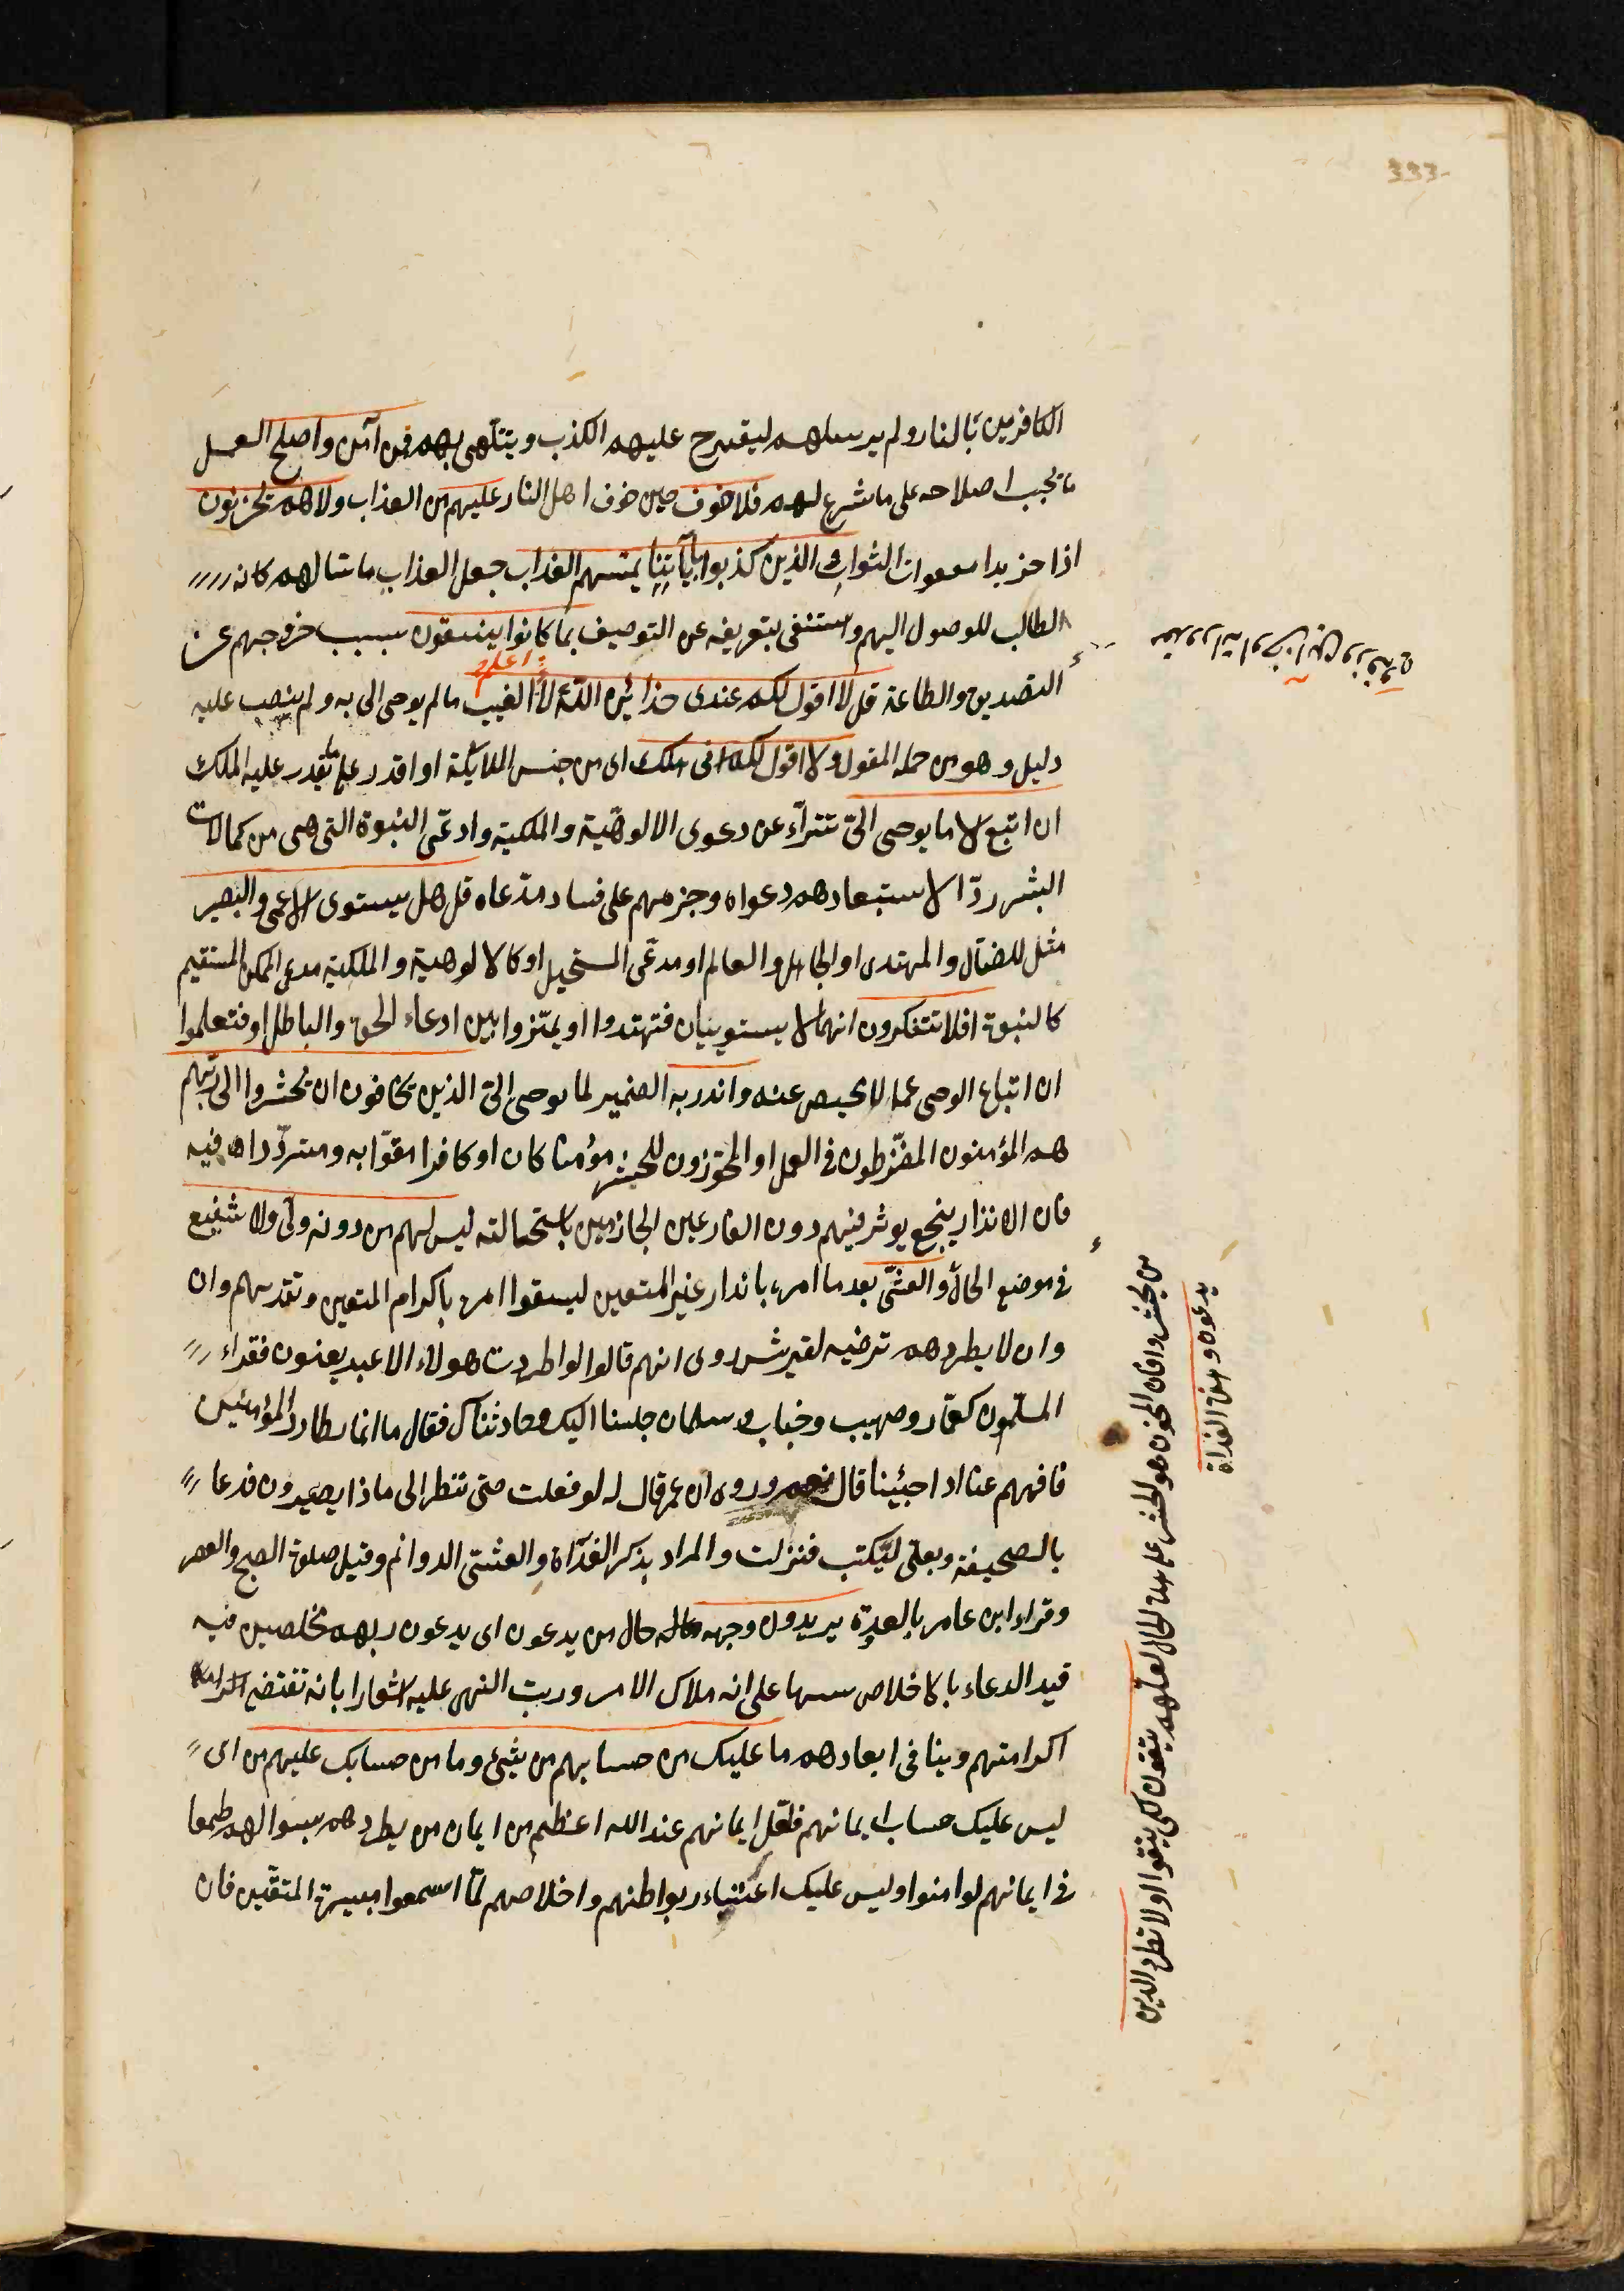 333
الكافرين بالنار ولم يرسلهم ليقترح عليهم الكذب ويتلهى بهم فمن آمن واصلح العمل
ما يجب اصلاحه على ما شرع لهم فلا خوف حين خوف اهل النار عليهم من العذاب ولا هم يحزنون
اذا حزن بدا الثواب والذين كذبوا بآيتنا يمسهم العذاب جعل العذاب ماسا لهم كانه
الطالب للوصول اليهم واستغنى بتعريفه عن التوصيف بما كانوا يفسقون بسبب خروجهم عن
التصديق والطاعة قل لا اقول لكم عندى خزائن الله ولا اعلم الغيب ما لم يوحى الى به ولم ينصب عليه
دليل وهو من جمله المقول ولا اقول لكم انى ملك اى من جنس الملائكة او اقدر على ما يقدر عليه الملك
ان اتبع الا ما يوحى الىّ تبرّأ عن دعوى الالوهيّة والملكية وادعّى النبوة التى هى من كمالات
البشر ردّا لاستبعادهم دعواه وجزمهم على فساد مدّعاه قل هل يستوى الاعمى والبصير
مثل للضآل والمهتدى او الجاهل والعالم او مدعّى المستحيل كالالوهية والملكية مدعى الممكن المستقيم
كالنبوة افلا تتفكرون انهما لا يستويان فتهتدوا او تميّزوا بين ادعاء الحق والباطل او فتعلموا
ان اتباع الوحى مما لا محيص عنه وانذر به الضمير لما يوحى الىّ الذين يخافون ان يحشروا الى ربّهم
هم المؤمنون المفرّطون فى العمل او المجوّزون للحشر مؤمنا كان او كافرا مقرّا به ومتردّدا فيه
فان الانذار ينجع يوثر فيهم دون الفارعين الجازمين باستحالته ليس لهم من دونه ولى ولا شفيع
فى موضع الحال والعشىّ بعد ما امره بانذار غير المتقين ليتقوا امره باكرام المتقين وتقديمهم وان
وان لا يطردهم ترضيه لقريش روى انهم قالوا لو اطردت هولاء الاعبد يعنون فقراء
المسلمون كعمّار وصهيب وخباب وسلمان جلسنا اليك وحادثناك فقال ما انا بطارد المؤمنين
فاقمهم عنا اذا جئينا قال نعم وروى ان عمر قال له لو فعلت حتى تنظر الى ماذا يصيرون فدعا
بالصحيفة وبعلى ليكتب فنزلت والمراد بذكر الغداة والعشىّ الدوام وقيل صلوة الصبح والعصر
وقراء ابن عامر بالغدوة يريدون وجهه حال من يدعون اى يدعون ربهم مخلصين فيه
قيد الدعاء بالاخلاص على انه ملاك الامر ورتب النهى عليه اشعارا بانه تقتضى
اكرامتهم وينافى ابعادهم ما عليك من حسابهم من شىء وما من حسابك عليهم من اى
ليس عليك حساب ايمانهم فلعّل ايمانهم عند الله اعظم من ايمان من يطردهم بسوالهم طمعا
فى ايمانهم لو امنوا وليس عليك اعتبار بواطنهم واخلاصهم لمّا اتسموا بسيرة المتقين فان
من يحشر فان المخوف هو الحشر على هذه الحال لعلهم يتقون لكى يتقوا ولا تطرد الذين
يدعون بالغداة